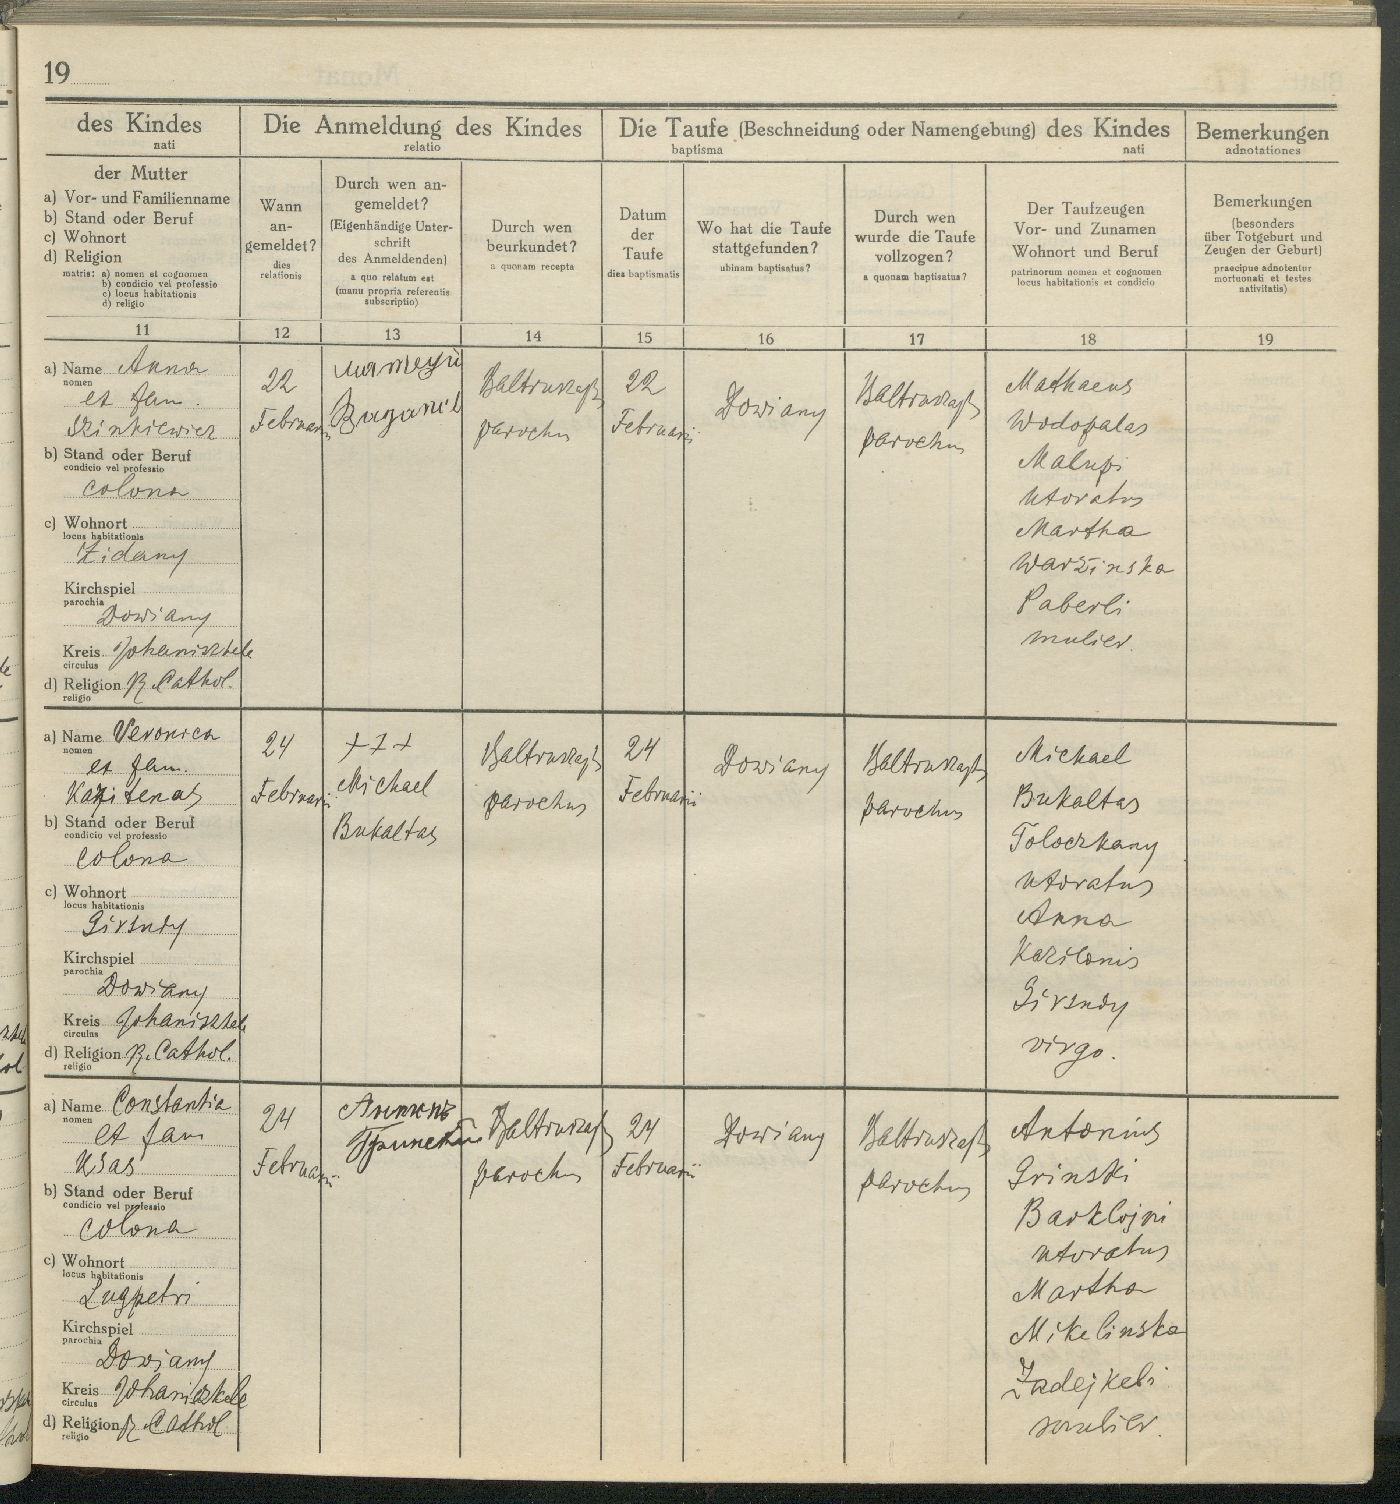 19
des Kindes
nati
Die Anmeldung des Kindes
relatio
Die Taufe (Beschneidung oder Namengebung) des Kindes
baptisma nati
Bemerkungen
adnotationes
der Mutter
a) Vor- und Familienname
b) Stand oder Beruf
c) Wohnort
d) Religion
matris: a) nomen et cognomen
b) condicio vel professio
c) locus habitationis
d) religio
Wann
an-
gemeldet?
dies
relationis
Durch wen an-
gemeldet?
(Eigenhändige Unter-
schrift
des Anmeldenden)
a quo relatum est
(manu propria referentis
subscriptio)
Durch wen
beurkundet?
a quonam recepta
Datum
der
Taufe
dies baptismatis
Wo hat die Taufe
stattgefunden?
ubinam baptisatus?
Durch wen
wurde die Taufe
vollzogen?
a quonam baptisatus?
Der Taufzeugen
Vor- und Zunamen
Wohnort und Beruf
patrinorum nomen et cognomen
locus habitationis et condicio
Bemerkungen
(besonders
über Totgeburt und
Zeugen der Geburt)
praecipue adnotentur
mortuonati et testes
nativitatis)
11 12 13 14 15 16 17 18 19
a) Name Anna
nomen
et fam.
Szinkiewicz
b) Stand oder Beruf
condicio vel professio
colona
c) Wohnort
locus habitationis
Zidany
Kirchspiel
parochia
Dowiany
Kreis Johaniszkele
circulus
d) Religion R. Cathol.
religio
22
Februarii
Baltruszajts
parochus
22
Februarii
Dowiany
Baltruszajts
parochus
Mathaeus
Wodopalas
Malupi
uxoratus
Martha
Warzinska
Paberli
mulier.
a) Name Veronica
nomen
et fam.
b) Stand oder Beruf
condicio vel professio
colona
c) Wohnort
locus habitationis
Girsudy
Kirchspiel
parochia
Dowiany
Kreis Johaniszkele
circulus
d) Religion R. Cathol.
religio
24
Februarii
+++
Michael
Bukaltas
Baltruszajts
parochus
24
Februarii
Dowiany
Baltruszajts
parochus
Michael
Bukaltas
Toloczkany
uxoratus
Anna
Kazilonis
Girsudy
virgo.
a) Name Constantia
nomen
et fam
Usas
b) Stand oder Beruf
condicio vel professio
colona
c) Wohnort
locus habitationis
Lugpetri
Kirchspiel
parochia
Dowiany
Kreis Johaniszkele
circulus
d) Religion R. Cathol
religio
24
Februarii
Baltruszajts
parochus
24
Februarii
Dowiany
Baltruszajts
parochus
Antonius
Grinski
Barklojni
uxoratus
Martha
Mikelinska
Zadejkeli
mulier.